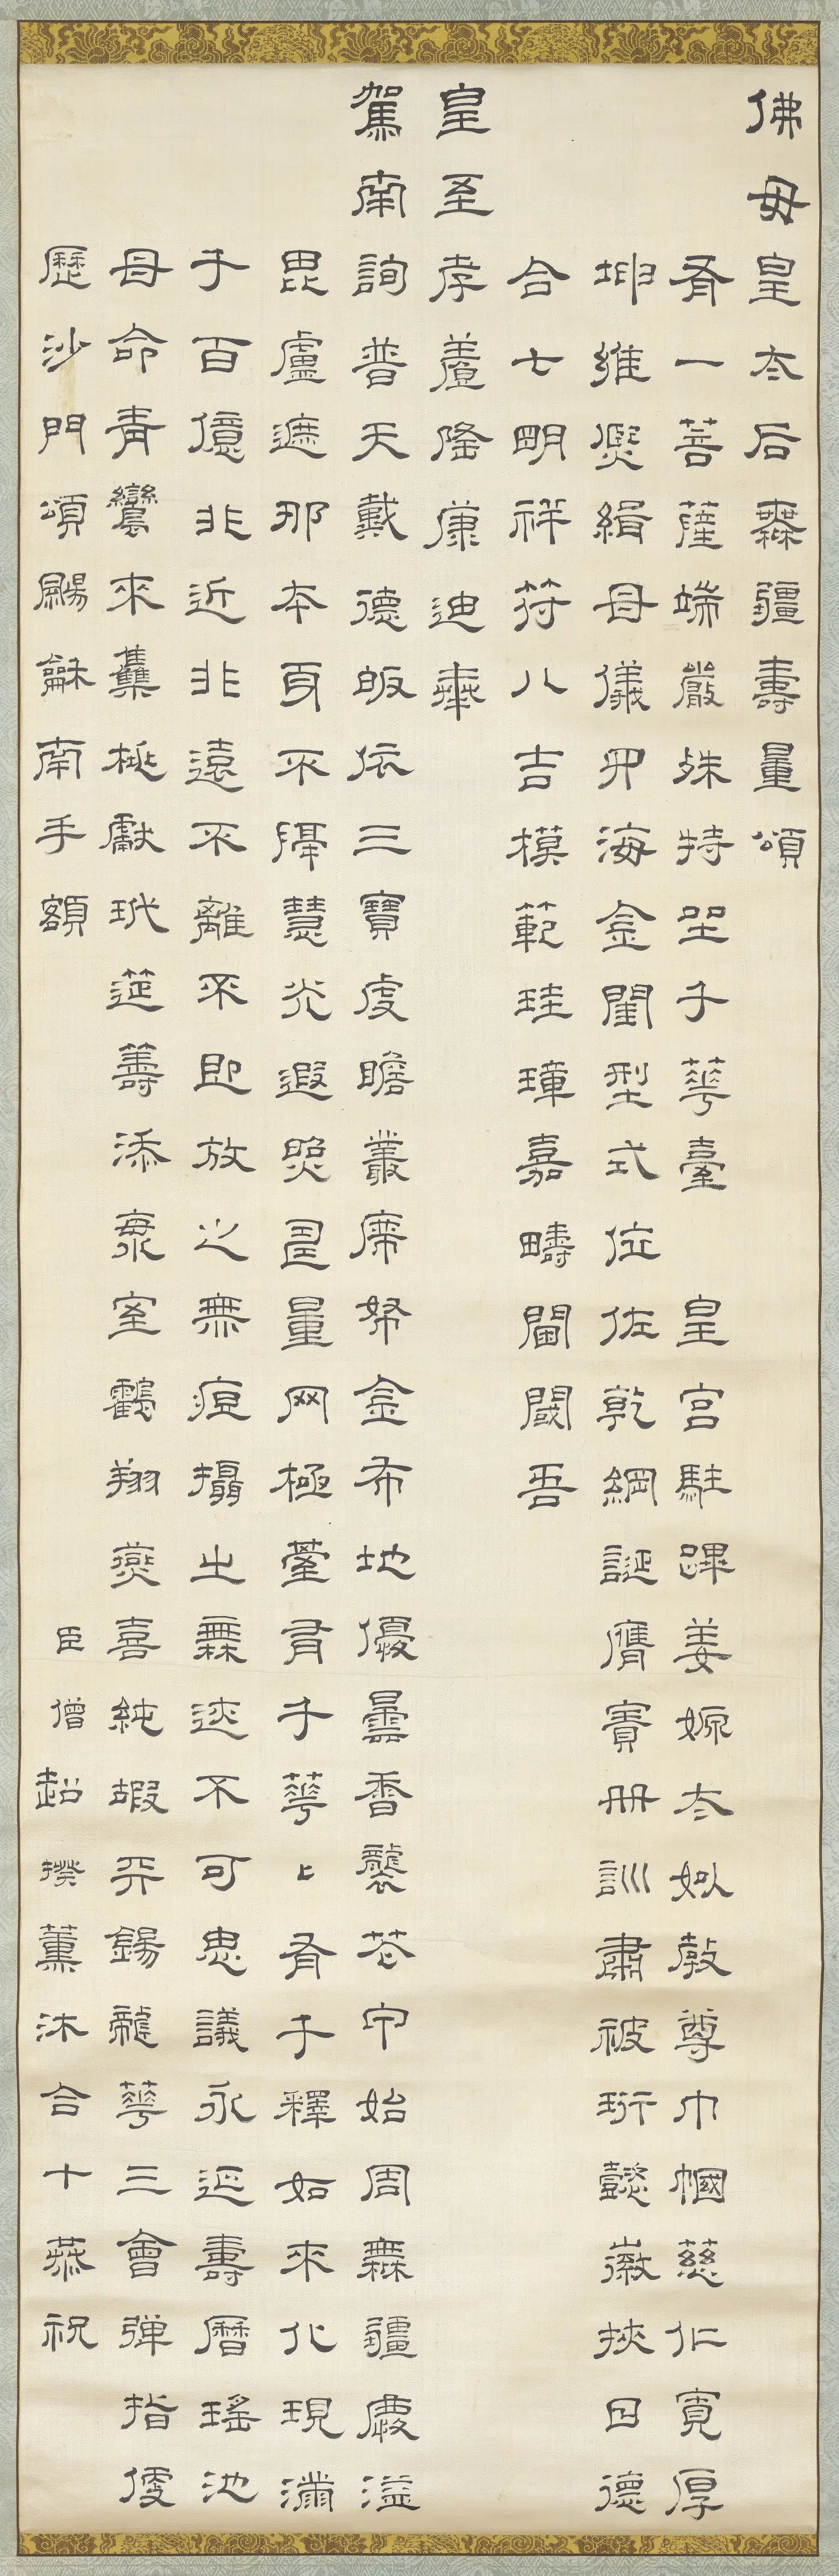 佛母皇太后無疆壽量頌
有一菩薩端嚴姝特坐千華臺 皇宮駐蹕姜嫄太姒教尊巾幗慈仁寬厚
坤維熙緝母儀四海金閨型式位佐乾綱誕膺寶冊訓肅被珩懿徽挾日德
合七明祥符八吉模範珪璋嘉疇閫閾吾
皇至孝養隆康迪奉
駕南詢普天戴德皈依三寶虔瞻叢席帑金布地優曇香襲芯宇始周無疆慶溢
毘盧遮那本身不隔慧光遐照量罔極臺有千華上有千釋如來化現滿
千百億非近非遠不離不即放之無痕攝之無迹不可思議永延壽曆瑤池
母命青鸞來集桃獻玳筵籌添室鶴翔燕喜純嘏平錫龍華三會彈指便
歷沙門頌颺龢南手額 臣僧超揆薰沐合十恭祝